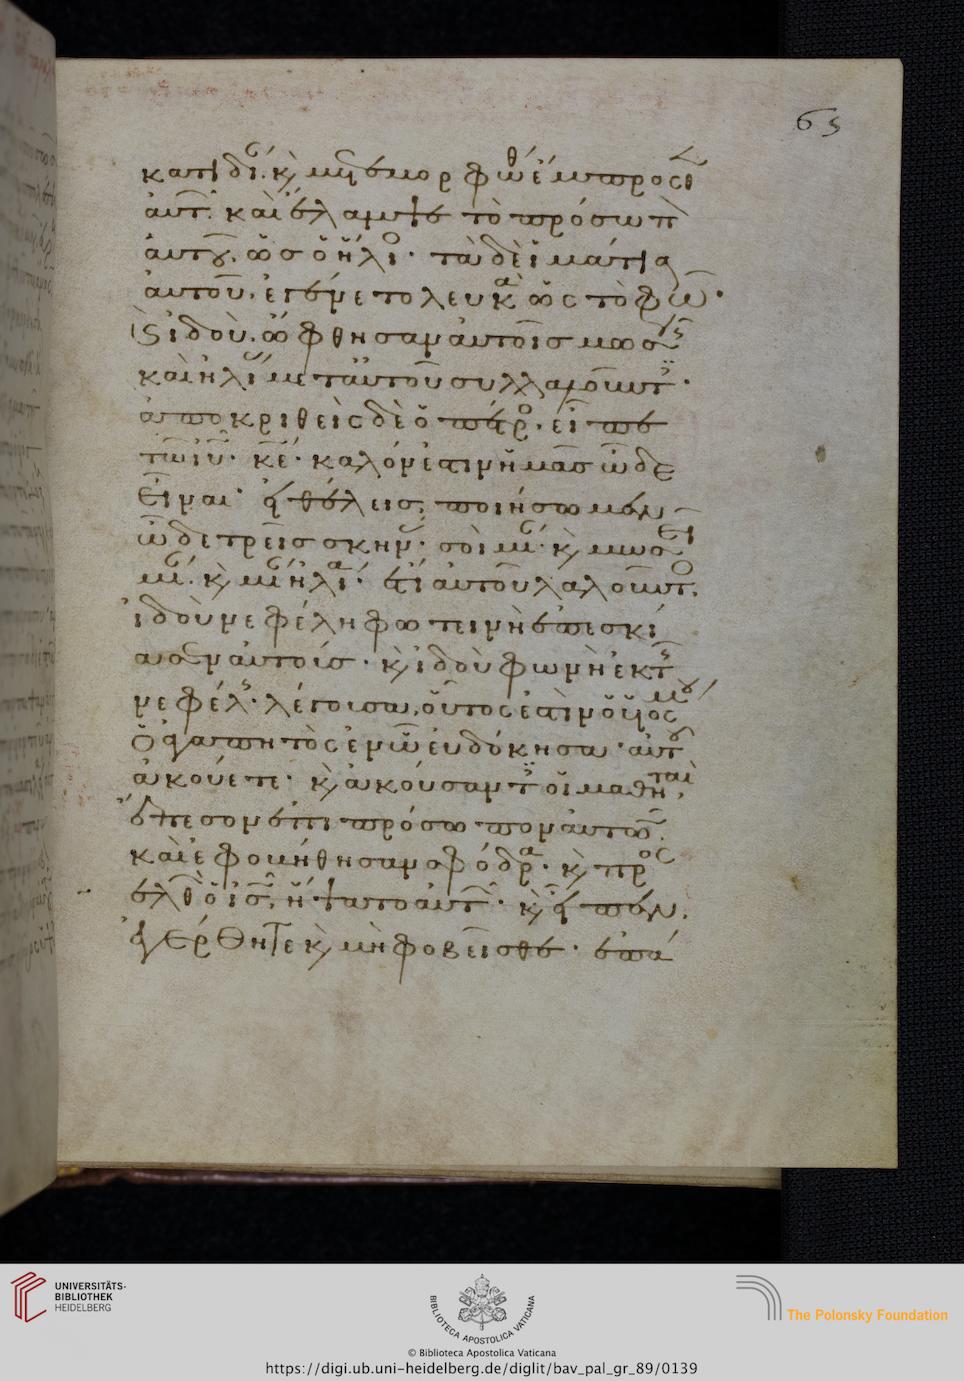 65
κατιδί. κ̀ μετεμορφώθ ἔμπροσθ
ἀυτ. καὶ ἔλαμψε τὸ πρόσωπ
ἀυτοῦ, ὡσ ὁ ἥλιο· τὰ δὲ ἱμάτια
ἀυτοῦ, ἐγένετο λευκὰ ὡς τὸ φῶ·
κ̀ ἰδοὺ, ὤφθησαν ἀυτοῖσ μωσῆς
καὶ ἠλί μετ ἀυτοῦ συλλαλοῦντ·
ἀποκριθεὶς δὲ ὁ πέτρο, εἶπε
τῶ ἰυ· κε· καλόν ἐστιν ἡμᾶσ ὧδε
εἶναι· εἰ θέλεισ, ποιήσωμεν
ὧδε τρεῖσ σκην· σοὶ μί· κ̀ μωσεῖ
μί. κ̀ μί ἠλία· ἔτι ἀυτοῦ λαλοῦντο,
ἰδοὺ νεφέλη φωτεινὴ ἐπεσκί
ασεν ἀυτοίσ· κ̀ ἰδοὺ φωνὴ ἐκ τῆς
νεφέλης· λέγουσα, οὗτος ἐστὶν ὁ υἱός μου
ὁ ἀγαπητὸς ἐν ὧ ἐυδόκησα· ἀυτοῦ
ἀκούετε· κ̀ ἀκούσαντες οἱ μαθηταὶ,
ἔπεσον ἐπὶ πρόσωπον ἀυτῶν.
καὶ ἐφοβήθησαν σφόδρα· κ̀ προς
ελθὼ ὁ ις, ἥψατο ἀυτῶν· κ̀ εἶπεν,
ἐγέρθητε κ̀ μὴ φοβεῖσθε· ἐπά
UNIVERSITÄTS-
BIBLIOTHEK
HEIDELBERG
BIBLIOTECA APOSTOLICA VATICANA
The Polonsky Foundation
© Biblioteca Apostolica Vaticana
https://digi.ub.uni-heidelberg.de/diglit/bav_pal_gr_89/0139